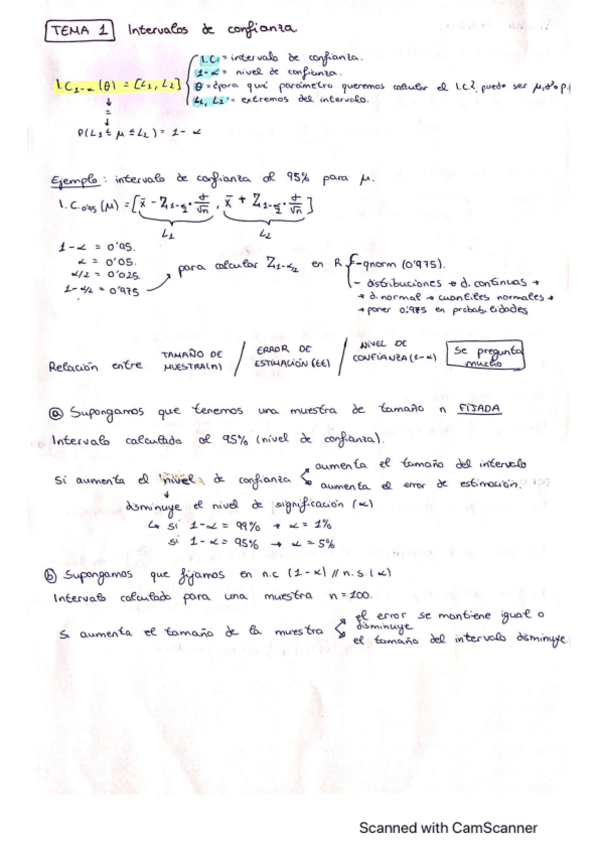 TEMA 1 Intervalos de confianza
I.C. = intervalo de confianza.
1-α = nivel de confianza.
I.C1-α (θ) = [L1, L2]
θ = ¿para qué parámetro queremos calcular el I.C?, puede ser μ, σ² o p.
L1, L2 = extremos del intervalo.
P(L1 ≤ μ ≤ L2) = 1-α
Ejemplo: intervalo de confianza al 95% para μ.
I.C0'95 (μ) = [x̄ - Z1-α/2 · σ/√n , x̄ + Z1-α/2 · σ/√n ]
L1 L2
1-α = 0'95.
α = 0'05.
α/2 = 0'025.
1-α/2 = 0'975
para calcular Z1-α/2 en R
- qnorm (0'975).
- distribuciones → d. continuas →
→ d. normal → cuantiles normales →
→ poner 0.975 en probabilidades
Relación entre TAMAÑO DE MUESTRA(n) / ERROR DE ESTIMACIÓN (EE) / NIVEL DE CONFIANZA (1-α) Se pregunta mucho
ⓐ Supongamos que tenemos una muestra de tamaño n FIJADA
Intervalo calculado al 95% (nivel de confianza).
Si aumenta el nivel de confianza
aumenta el tamaño del intervalo
aumenta el error de estimación.
disminuye el nivel de significación (α)
↳ si 1-α = 99% → α = 1%
si 1-α = 95% → α = 5%
ⓑ Supongamos que fijamos en n.c (1-α) // n.s. (α)
Intervalo calculado para una muestra n = 100.
Si aumenta el tamaño de la muestra
el error se mantiene igual o
disminuye
el tamaño del intervalo disminuye
Scanned with CamScanner